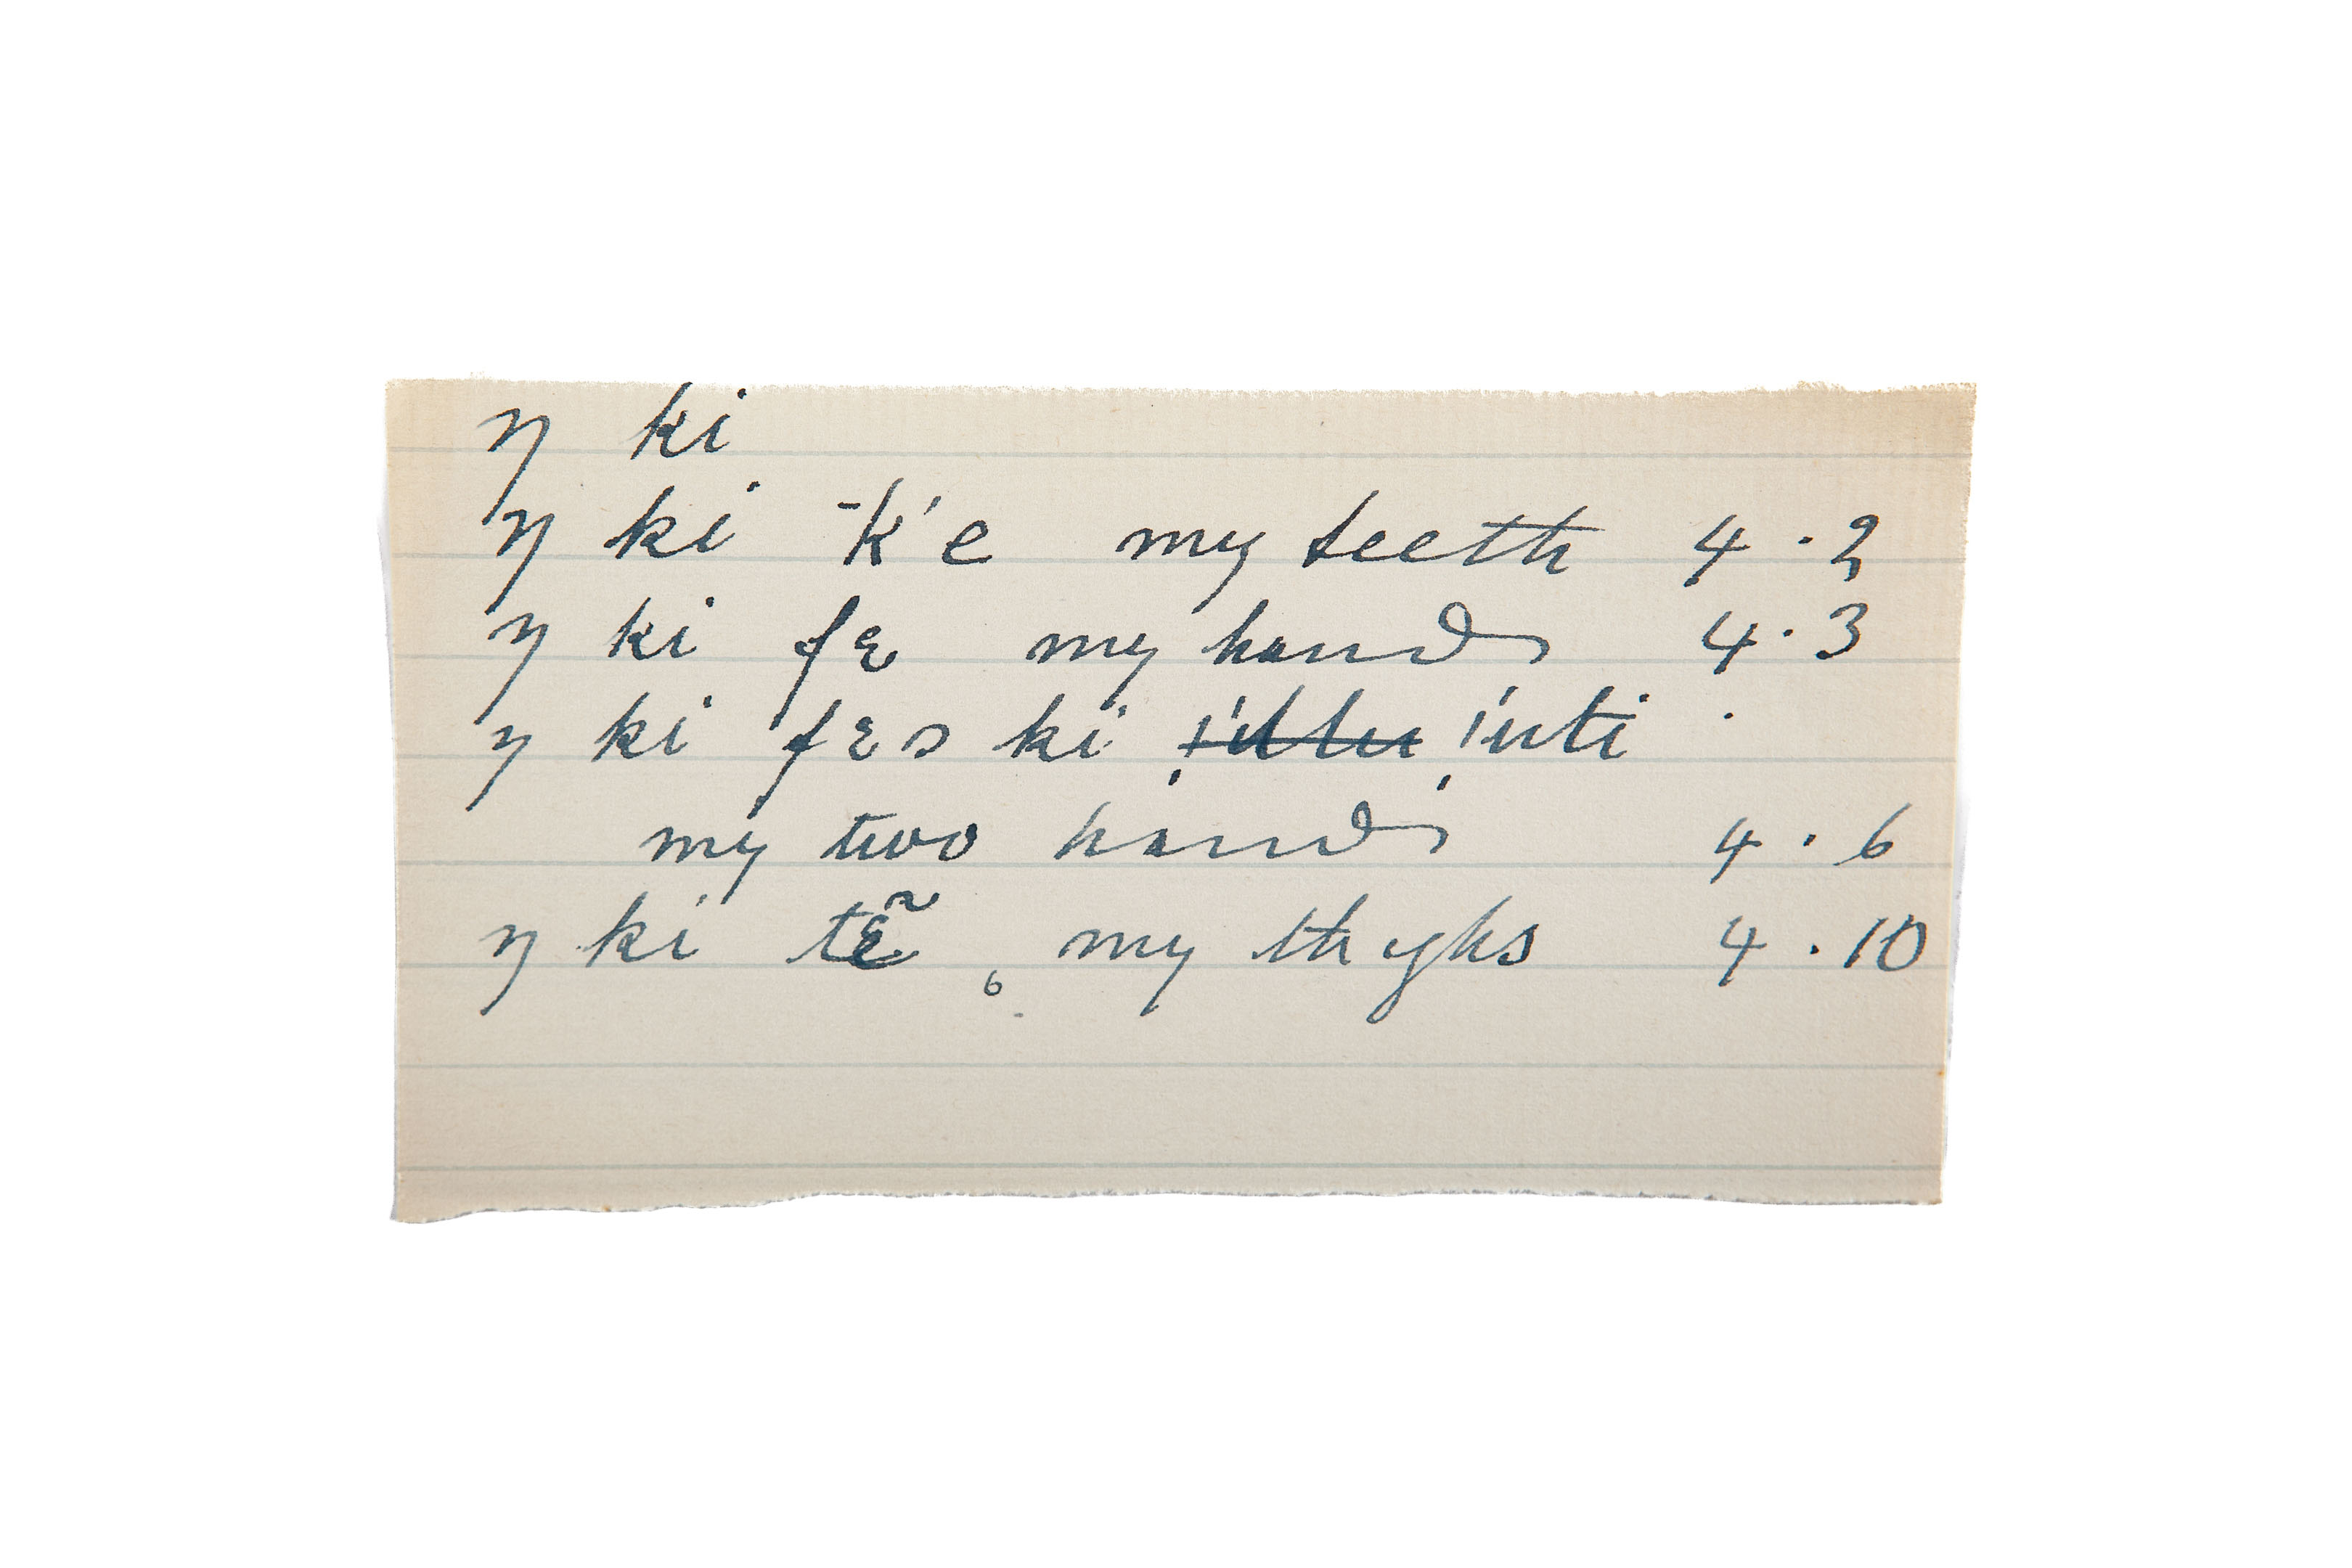 ŋ ki
ŋ ki -k'e my teeth 4.2
ŋ ki fɛ my hands 4.3
ŋ ki fɛs ki !'uti
my two hands 4.6
ŋ ki tɛ̃ my thyhs 4.10